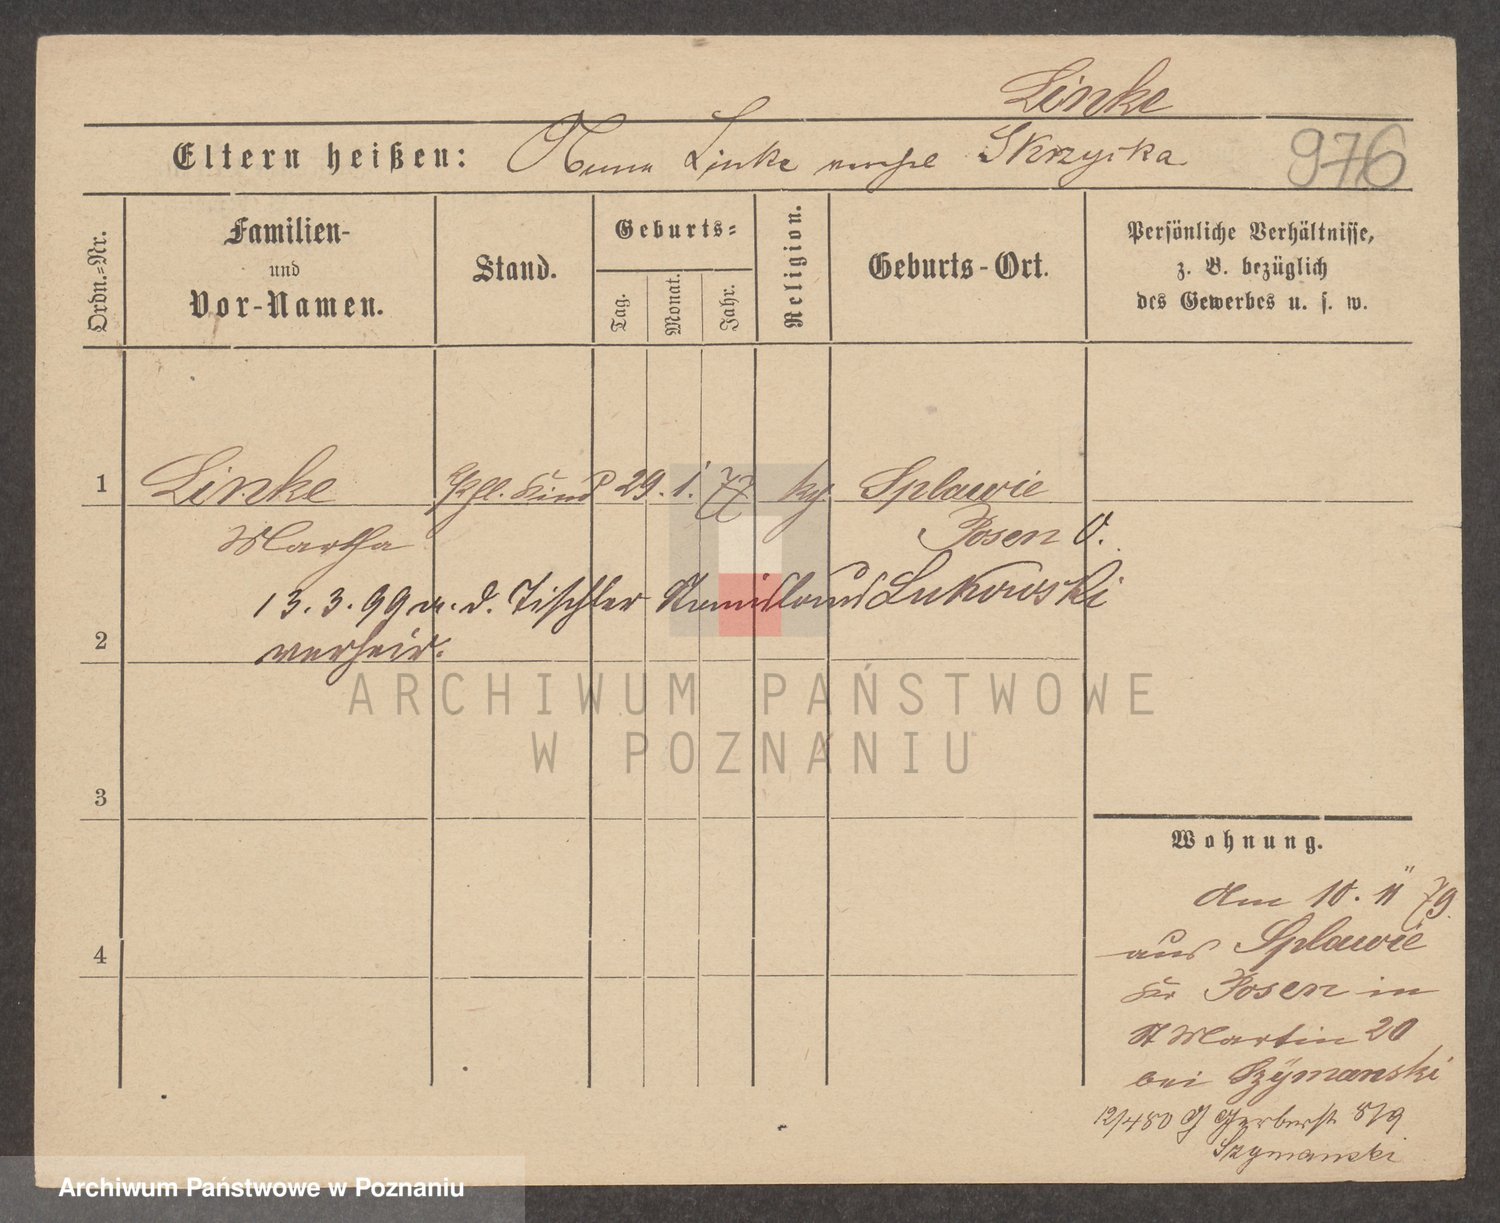 Linke
Eltern heißen: Anna Linke verehl Skrzycka
976
Ordn.-Nr.
Familien-
und
Vor-Namen.
Stand.
Geburts-
Tag.
Monat.
Jahr.
Religion.
Geburts-Ort.
Persönliche Verhältnisse,
z. B. bezüglich
des Gewerbes u. s. w.
1 Linke Kind 29. 1. 77 Splawie
Martha Posen O.
13. 3. 99 a. d. Tischler Stanislaus Lukowski
2 verheir.
3
4
Wohnung.
Am 10. 11 79
aus Splawie
Kr Posen in
St Martin 20
bei Szymanski
12/4 80 Gerberst 8/9
Szymanski
ARCHIWUM PAŃSTWOWE
W POZNANIU
Archiwum Państwowe w Poznaniu